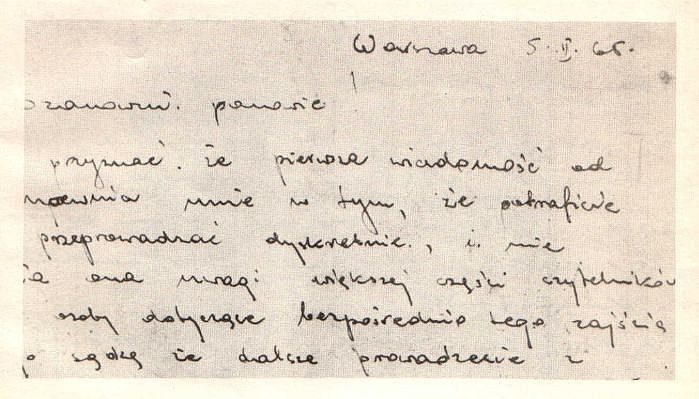 Warszawa 5. II. 65.
szanowni. panowie!
przyznać. że pierwsza wiadomość od
upewnia mnie w tym, że potraficie
przeprowadzać dyskretnie., i. nie
ona uwagi większej części czytelników
osoby dotyczące bezpośrednio tego zajścia
sądzę że dalsze prowadzenie z